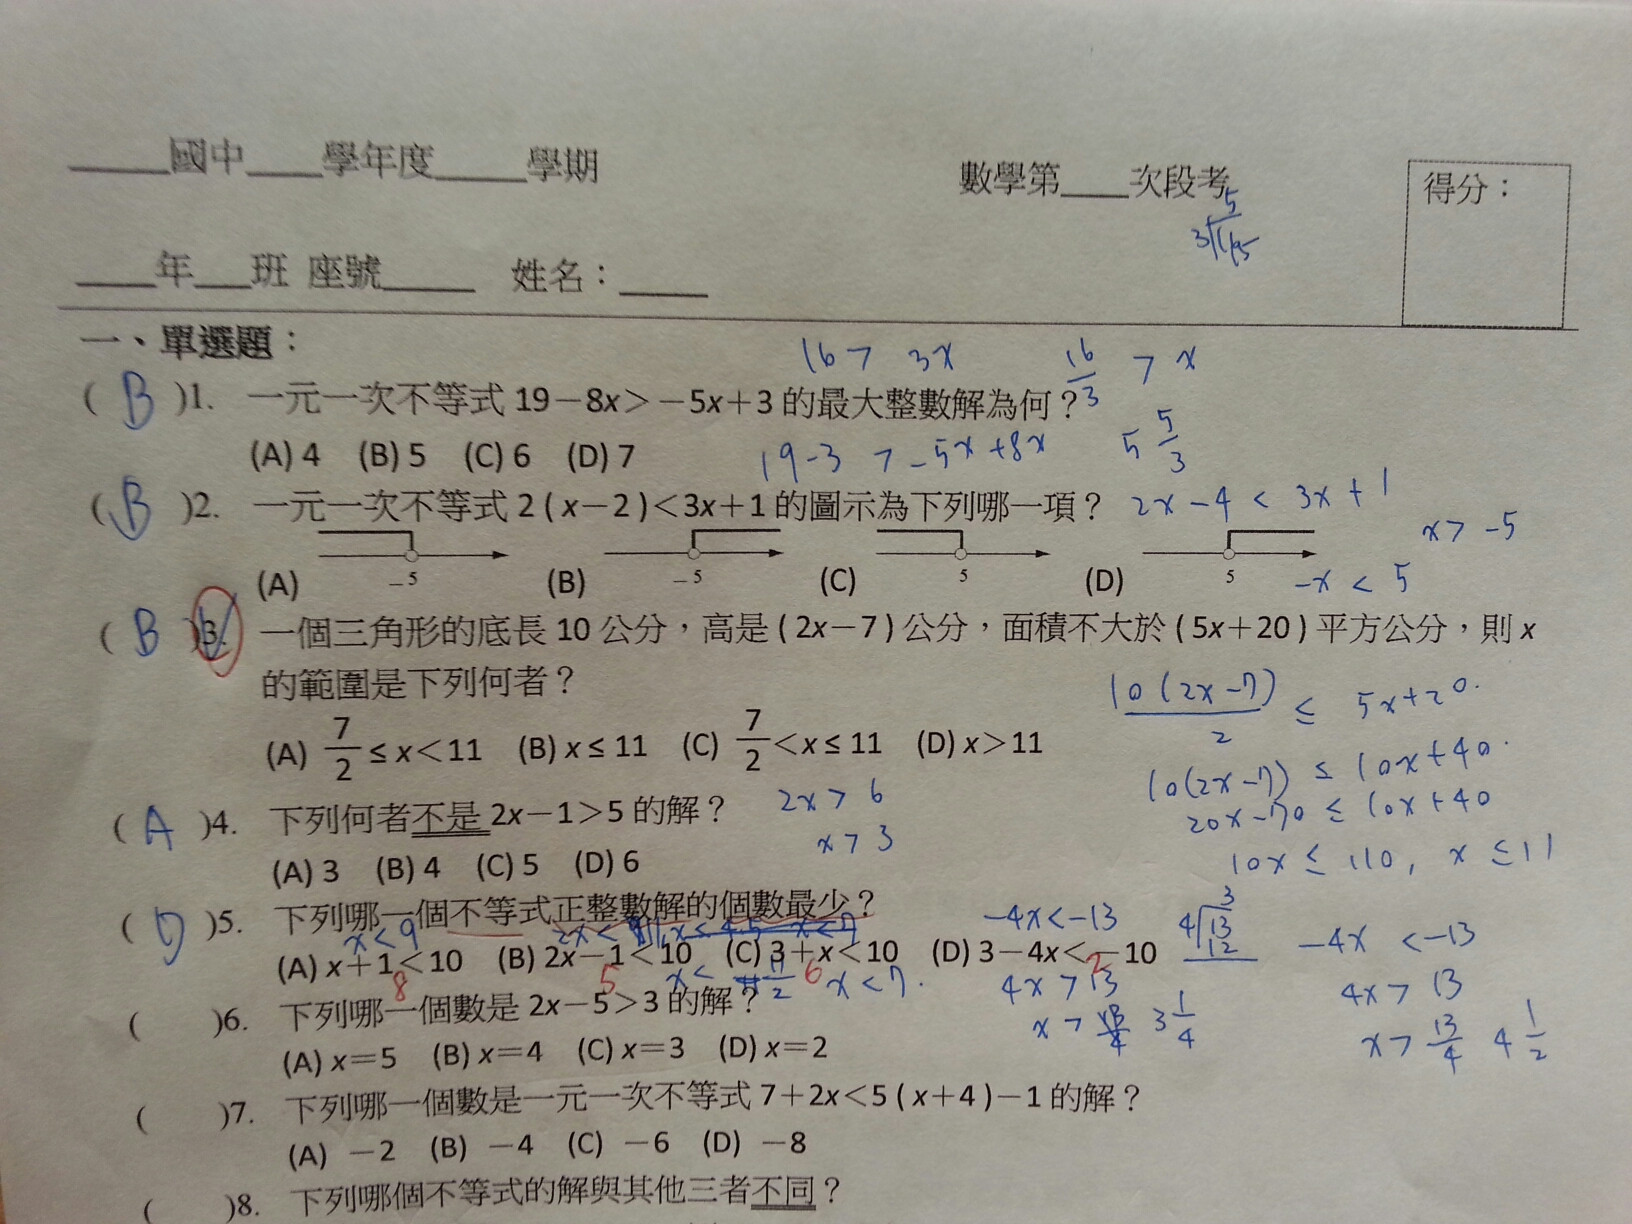 ____國中____學年度____學期
數學第____次段考
得分：
5
3 15
____年___班 座號_____ 姓名：_____
一、單選題：
16 > 3x
16/3 > x
( B )1. 一元一次不等式 19－8x＞－5x＋3 的最大整數解為何？
(A) 4 (B) 5 (C) 6 (D) 7
19-3 > -5x+8x
5 5/3
( B )2. 一元一次不等式 2 ( x－2 )＜3x＋1 的圖示為下列哪一項？
2x-4 < 3x+1
x> -5
(A) －5 (B) －5 (C) 5 (D) 5
-x < 5
( B )3. 一個三角形的底長 10 公分，高是 ( 2x－7 ) 公分，面積不大於 ( 5x＋20 ) 平方公分，則 x
的範圍是下列何者？
10(2x-7)/2 ≤ 5x+20.
(A) 7/2 ≤ x＜11 (B) x ≤ 11 (C) 7/2＜x ≤ 11 (D) x＞11
10(2x-7) ≤ 10x+40.
20x-70 ≤ 10x+40
10x ≤ 110, x ≤ 11
( A )4. 下列何者不是 2x－1＞5 的解？
2x > 6
x > 3
(A) 3 (B) 4 (C) 5 (D) 6
( D )5. 下列哪一個不等式正整數解的個數最少？
x<9
(A) x＋1＜10 (B) 2x－1＜10 (C) 3＋x＜10 (D) 3－4x＜－10
8 5 6 x<7.
-4x<-13
4x > 13
x > 13/4 3 1/4
3
4 13
12
-4x <-13
4x > 13
x > 13/4 4 1/2
( )6. 下列哪一個數是 2x－5＞3 的解？
(A) x＝5 (B) x＝4 (C) x＝3 (D) x＝2
( )7. 下列哪一個數是一元一次不等式 7＋2x＜5 ( x＋4 )－1 的解？
(A) －2 (B) －4 (C) －6 (D) －8
( )8. 下列哪個不等式的解與其他三者不同？